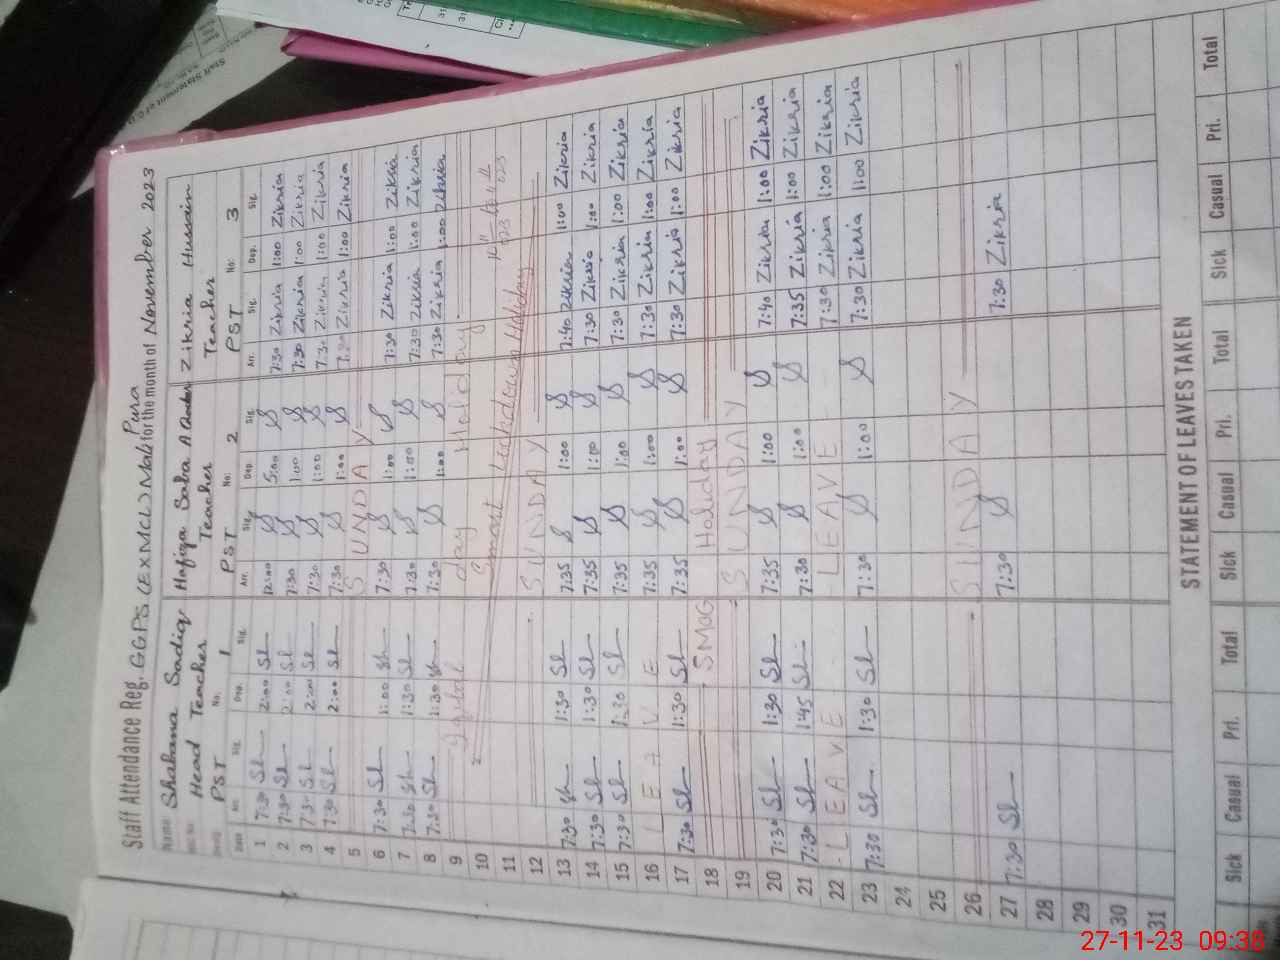 Staff Attendance Reg. GGPS (EXMCL) Mali Pura for the month of November 2023
Name Shabana Sadiq Hafiza Saba A Zikria Hussain
Head Teacher Teacher Teacher
PST No. 1 PST No: 2 PST No: 3
Date Arr. Sig. Dep. Sig. Arr. Sig. Dep. Sig. Arr. Sig. Dep. Sig.
1 7:30 Sh 2:00 Sh 12:00 S 5:00 S 7:30 Zikria 1:00 Zikria
2 7:30 Sh 2:00 Sh 7:30 S 1:00 S 7:30 Zikria 1:00 Zikria
3 7:30 Sh 2:00 Sh 7:30 S 1:00 S 7:30 Zikria 1:00 Zikria
4 7:30 Sh 2:00 Sh 7:30 S 1:00 S 7:30 Zikria 1:00 Zikria
5 SUNDAY
6 7:30 Sh 1:00 Sh 7:30 S 1:00 S 7:30 Zikria 1:00 Zikria
7 7:30 Sh 1:30 Sh 7:30 S 1:00 S 7:30 Zikria 1:00 Zikria
8 7:30 Sh 1:30 Sh 7:30 S 1:00 S 7:30 Zikria 1:00 Zikria
9 Iqbal day Holiday
10 Smart Lockdown Holiday
11
12 SUNDAY
13 7:30 Sh 1:30 Sh 7:35 S 1:00 S 7:40 Zikria 1:00 Zikria
14 7:30 Sh 1:30 Sh 7:35 S 1:00 S 7:30 Zikria 1:00 Zikria
15 7:30 Sh 1:30 Sh 7:35 S 1:00 S 7:30 Zikria 1:00 Zikria
16 LEAVE 7:35 S 1:00 S 7:30 Zikria 1:00 Zikria
17 7:30 Sh 1:30 Sh 7:35 S 1:00 S 7:30 Zikria 1:00 Zikria
18 SMOG Holiday
19 SUNDAY
20 7:30 Sh 1:30 Sh 7:35 S 1:00 S 7:40 Zikria 1:00 Zikria
21 7:30 Sh 1:45 Sh 7:30 S 1:00 S 7:35 Zikria 1:00 Zikria
22 LEAVE LEAVE 7:30 Zikria 1:00 Zikria
23 7:30 Sh 1:30 Sh 7:30 S 1:00 S 7:30 Zikria 1:00 Zikria
24
25
26 SUNDAY
27 7:30 Sh 7:30 S 7:30 Zikria
28
29
30
31
STATEMENT OF LEAVES TAKEN
Sick Casual Pri. Total Sick Casual Pri. Total Sick Casual Pri. Total
27-11-23 09:38